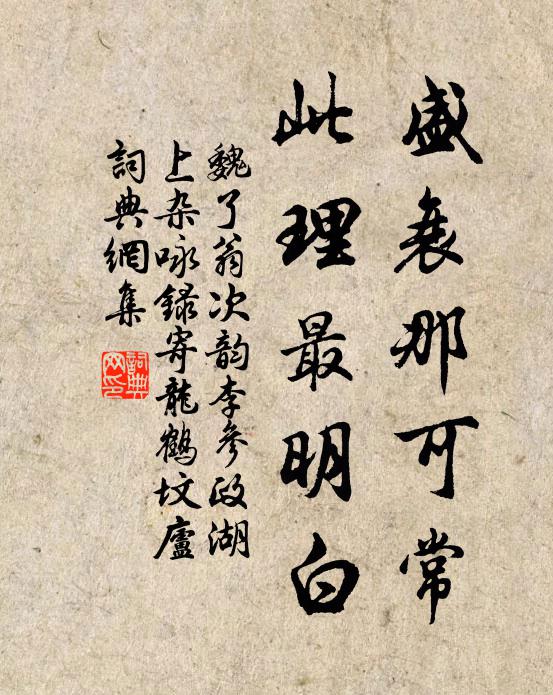 盛衰那可常
此理最明白
魏了翁次韵李参政湖
上杂咏録寄龍鶴坟廬
詞典網集
詞典
网印